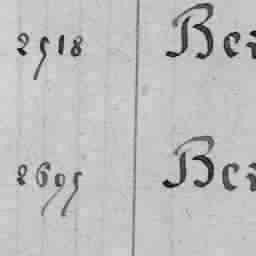 2518 Ber
2695 Ber